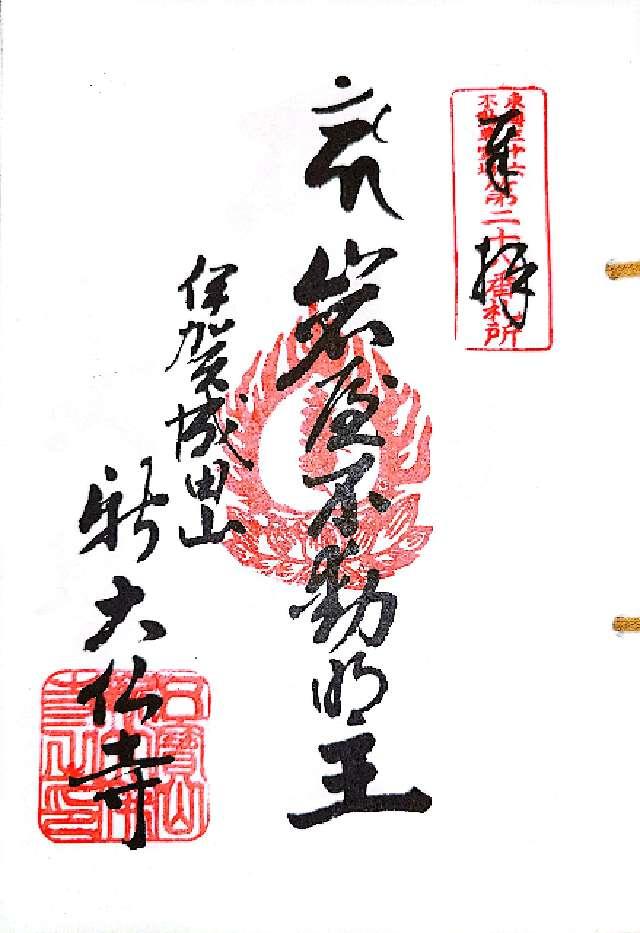 奉拝
東海三十六
不動尊霊場
第二十八番札所
岩屋不動明王
伊賀城田山
新大仏寺